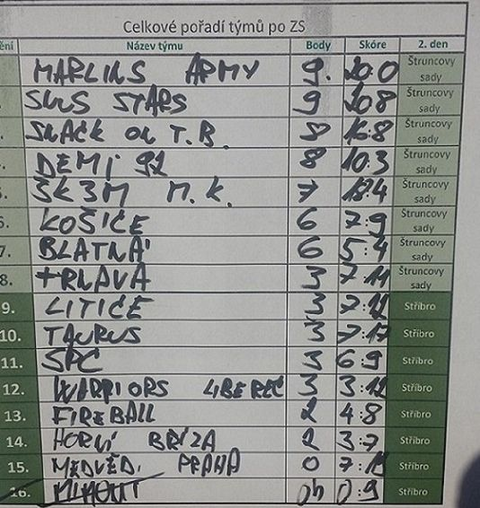 Celkové pořadí týmů po ZS
ění Název týmu Body Skóre 2. den
MARLINS ARMY 9. 20:0 Štruncovy sady
SNS STARS 9 20:8 Štruncovy sady
. SNACK ON T.B. 8 16:8 Štruncovy sady
. DEMI 92 8 10:3 Štruncovy sady
5. ŠK3M M.K. 7 Štruncovy sady
6. KOŠICE 6 7:9 Štruncovy sady
7. BLATNÁ 6 5:4 Štruncovy sady
8. TRNAVA 3 7:11 Štruncovy sady
9. LITICE 3 7:12 Stříbro
10. TAURUS 3 7:17 Stříbro
11. SPC 3 6:9 Stříbro
12. WARRIORS LIBEREC 3 3:12 Stříbro
13. FIREBALL 2 4:8 Stříbro
14. HORNÍ BŘÍZA 2 3:7 Stříbro
15. MEDVĚD. PRAHA 0 Stříbro
16. 0 0:9 Stříbro